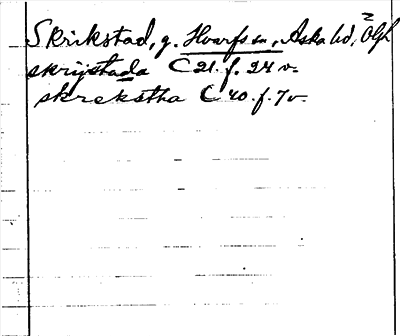 Skrikstad, g. Hvarfs sn, Aska hd, Ög
skrijstada C 21. f. 24 v.
skrekstha C 40. f. 7 v.